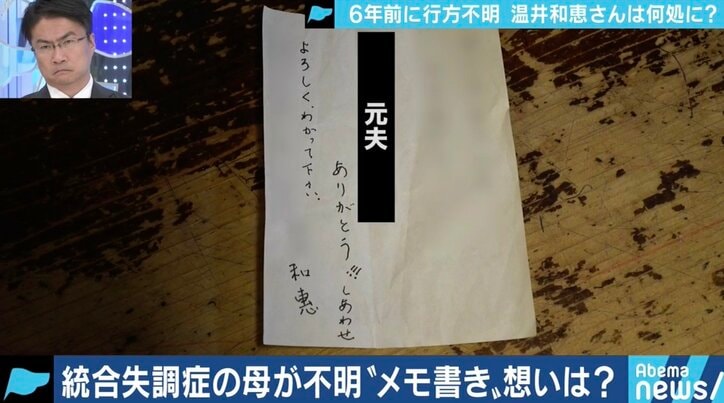 6年前に行方不明 温井和恵さんは何処に?
元夫
ありがとう!!! しあわせ
よろしく、わかって下さい。
和惠
統合失調症の母が不明〝メモ書き〟想いは?
Abema
news/